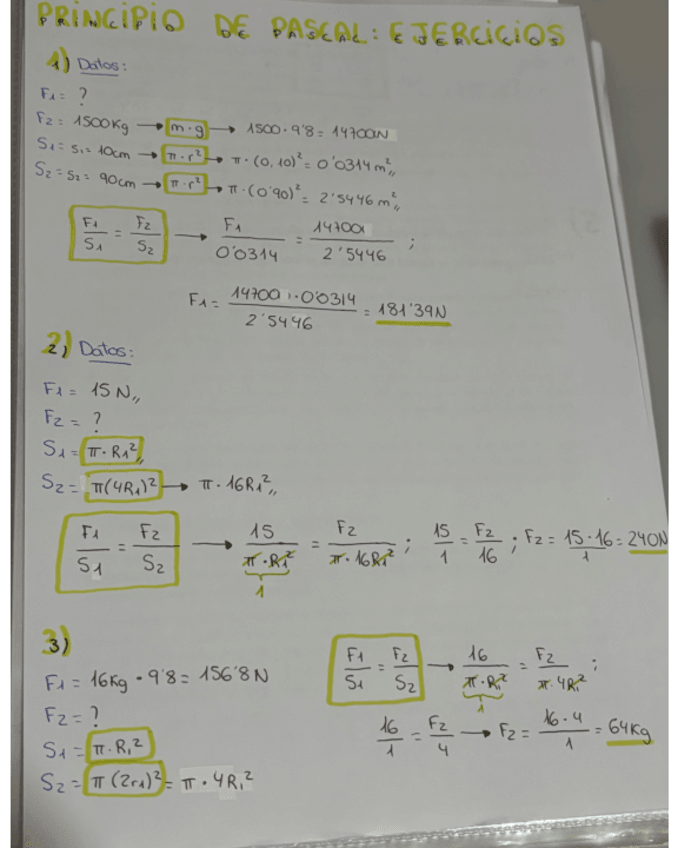 PRINCIPIO DE PASCAL: EJERCICIOS
1) Datos:
F1 = ?
F2 = 1500Kg → m·g → 1500·9'8 = 14700N
S1 = s1 = 10cm → π·r² → π·(0,10)² = 0'0314 m²,,
S2 = s2 = 90cm → π·r² → π·(0'90)² = 2'5446 m²,,
F1/S1 = F2/S2 → F1/0'0314 = 14700/2'5446 ;
F1 = 14700·0'0314/2'5446 = 181'39N
2) Datos:
F1 = 15 N,,
F2 = ?
S1 = π·R1²,,
S2 = π(4R1)² → π·16R1²,,
F1/S1 = F2/S2 → 15/π·R1² = F2/π·16R1² ; 15/1 = F2/16 ; F2 = 15·16/1 = 240N
1
3)
F1 = 16Kg · 9'8 = 156'8 N
F2 = ?
S1 = π·R1²
S2 = π(2r1)² = π·4R1²
F1/S1 = F2/S2 → 16/π·R1² = F2/π·4R1² ;
1
16/1 = F2/4 → F2 = 16·4/1 = 64Kg